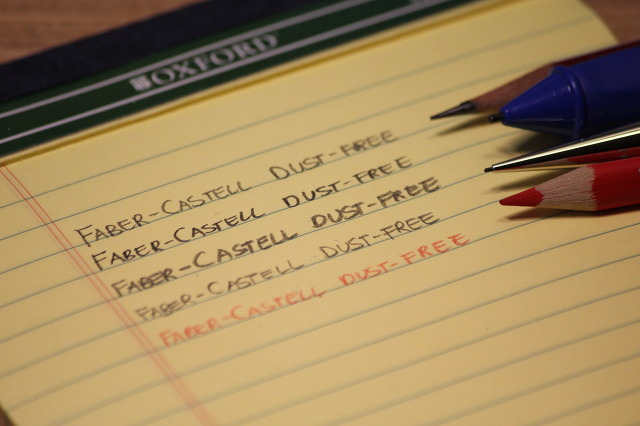 OXFORD
FABER-CASTELL DUST-FREE
FABER-CASTELL DUST-FREE
FABER-CASTELL DUST-FREE
FABER-CASTELL DUST-FREE
FABER-CASTELL DUST-FREE